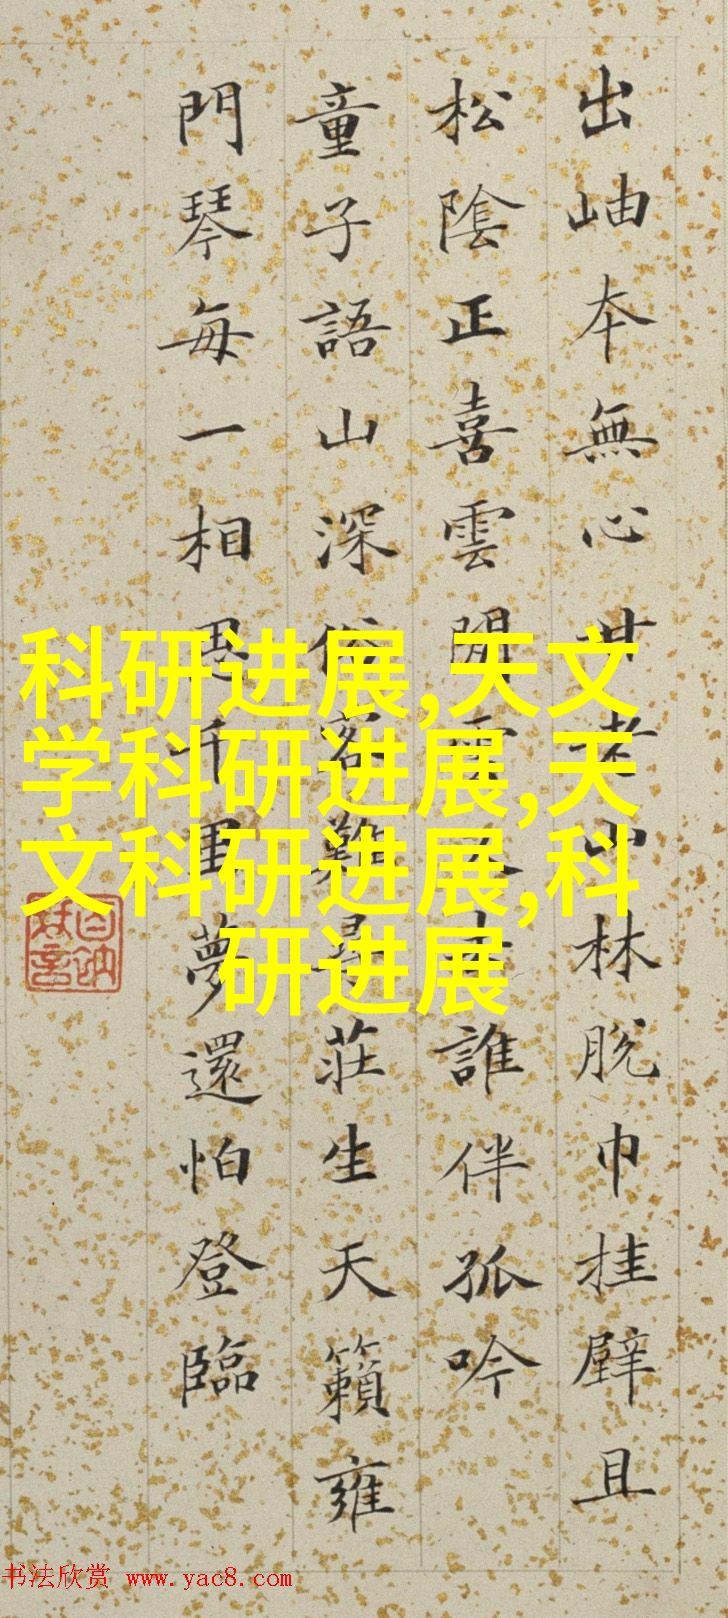 出岫本無心甘老山林脫巾挂壁且
松陰正喜雲閒雲又去誰伴孤吟
童子語山深俗客難尋莊生天籟雍
門琴每一相思千里夢還怕登臨
科研进展,天文
学科研进展,天
文科研进展,科
研进展
书法欣赏 www.yac8.com